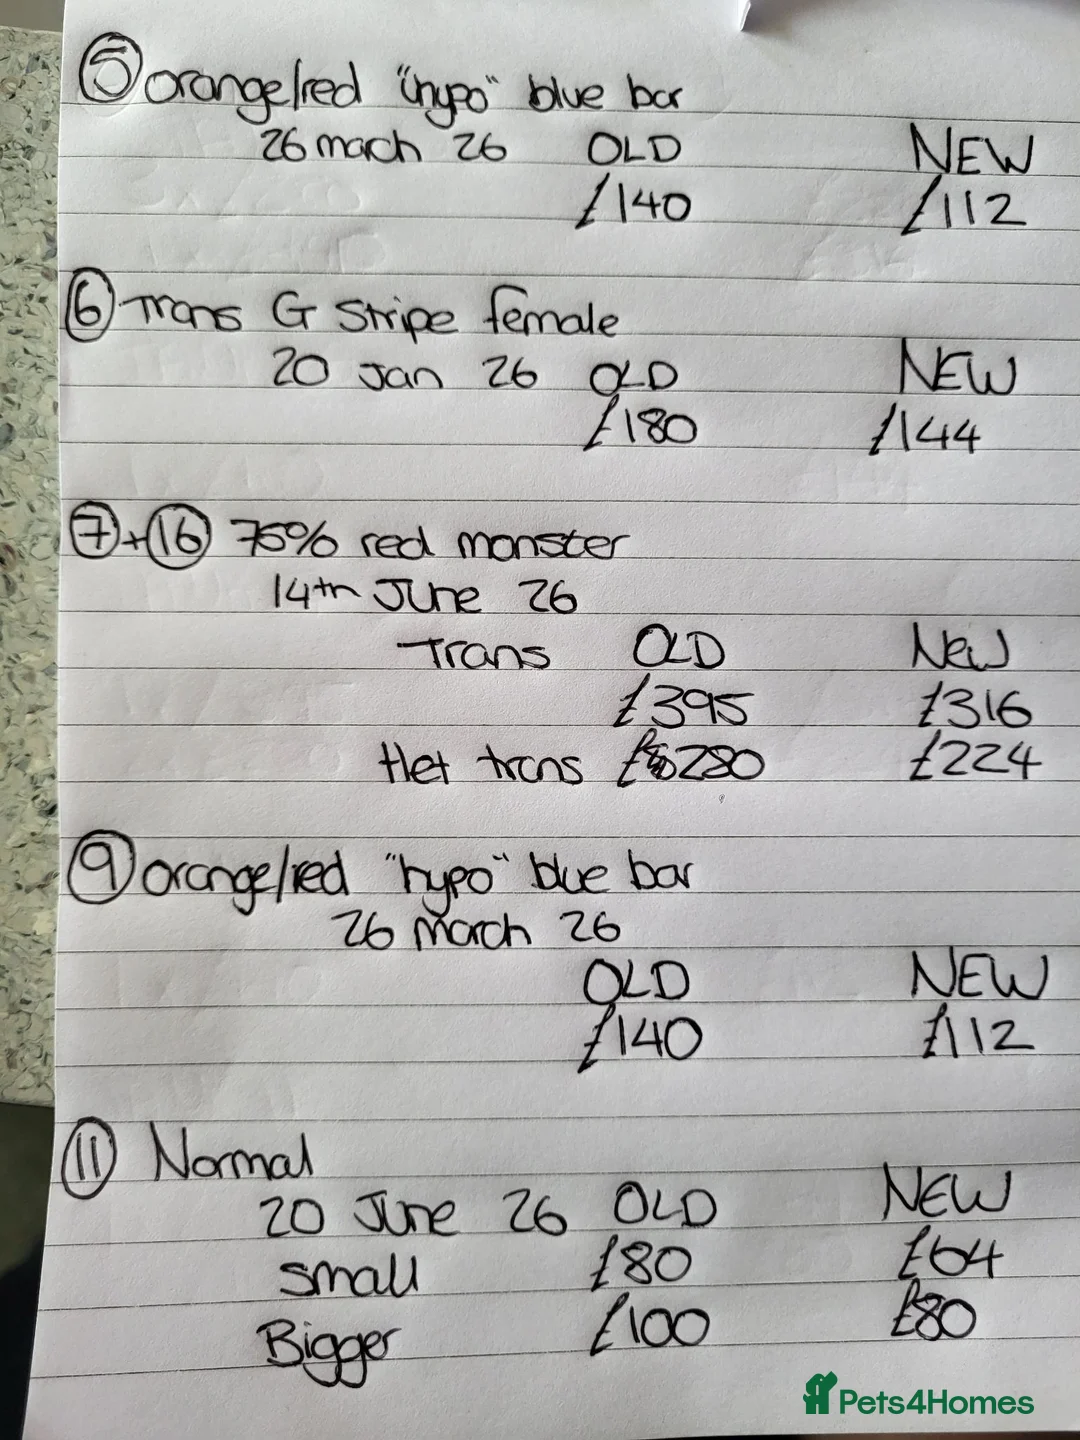 5 orange/red "hypo" blue bar
26 march 26 OLD NEW
£140 £112
6 Trans G Stripe female
20 Jan 26 OLD NEW
£180 £144
7 + 16 75% red monster
14th June 26
Trans OLD New
£395 £316
Het trans £280 £224
9 orange/red "hypo" blue bar
26 march 26
OLD NEW
£140 £112
11 Normal
20 June 26 OLD NEW
small £80 £64
Bigger £100 £80
Pets4Homes